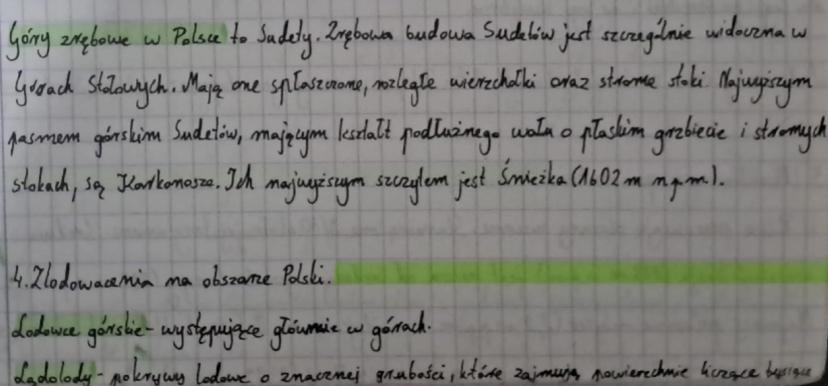 Góry zrębowe w Polsce to Sudety. Zrębowa budowa Sudetów jest szczególnie widoczna w
Górach Stołowych. Mają one spłaszczone, rozległe wierzchołki oraz strome stoki. Najwyższym
pasmem górskim Sudetów, mającym kształt podłużnego wału o płaskim grzbiecie i stromych
stokach, są Karkonosze. Ich najwyższym szczytem jest Śnieżka (1602 m n.p.m.).
4. Zlodowacenia na obszarze Polski.
Lodowce górskie - występujące głównie w górach.
Lądolody - pokrywy lodowe o znacznej grubości, które zajmują powierzchnie liczące tysiące